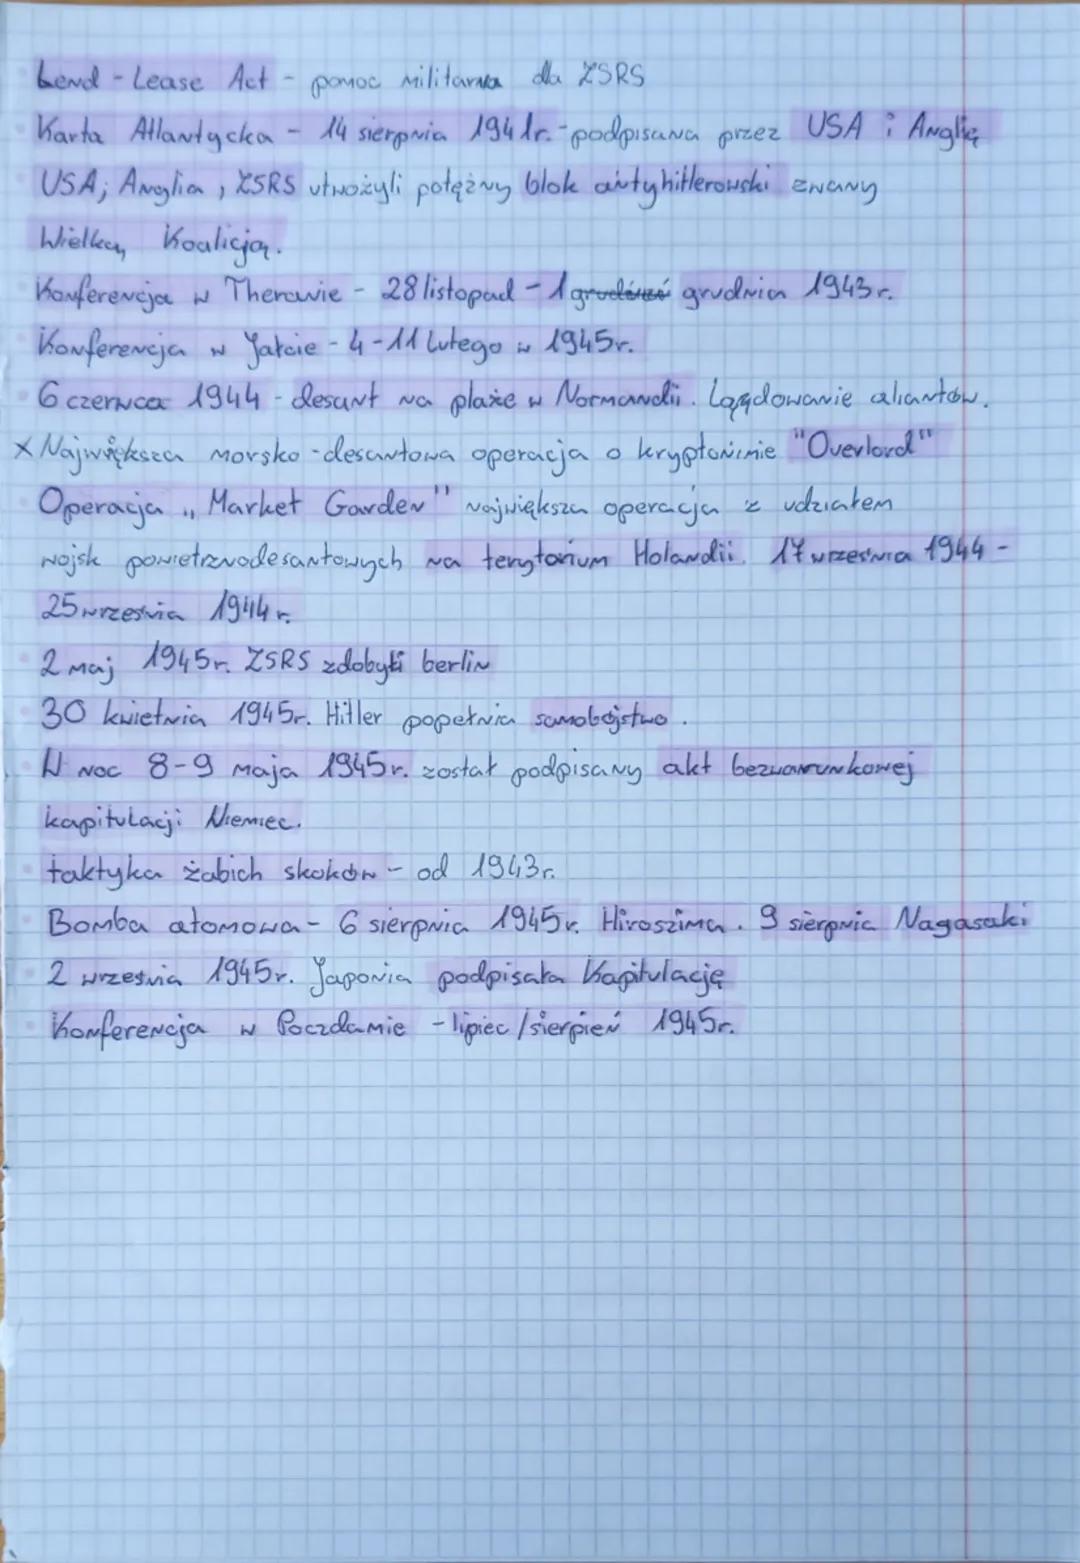 Lend - Lease Act - pomoc militarna dla ZSRS
Karta Atlantycka - 14 sierpnia 1941r. - podpisana przez USA i Anglię
USA; Anglia, ZSRS utwożyli potężny blok antyhitlerowski zwany
Wielką Koalicją.
Konferencja w Theranie - 28 listopad - 1 grudnia 1943r.
Konferencja w Jałcie - 4-11 lutego w 1945r.
6 czerwca 1944 - desant na plaże w Normandii. Lądowanie aliantów.
x Największa morsko-desantowa operacja o kryptonimie "Overlord"
Operacja „Market Garden" największa operacja z udziałem
wojsk powietrznodesantowych na terytorium Holandii. 17 września 1944 -
25 września 1944r.
2 maj 1945r. ZSRS zdobyli berlin
30 kwietnia 1945r. Hitler popełnia samobójstwo.
W noc 8-9 maja 1945r. został podpisany akt bezwarunkowej
kapitulacji Niemiec.
taktyka żabich skoków - od 1943r.
Bomba atomowa - 6 sierpnia 1945r. Hiroszima. 9 sierpnia Nagasaki
2 września 1945r. Japonia podpisała kapitulację
Konferencja w Poczdamie - lipiec/sierpień 1945r.